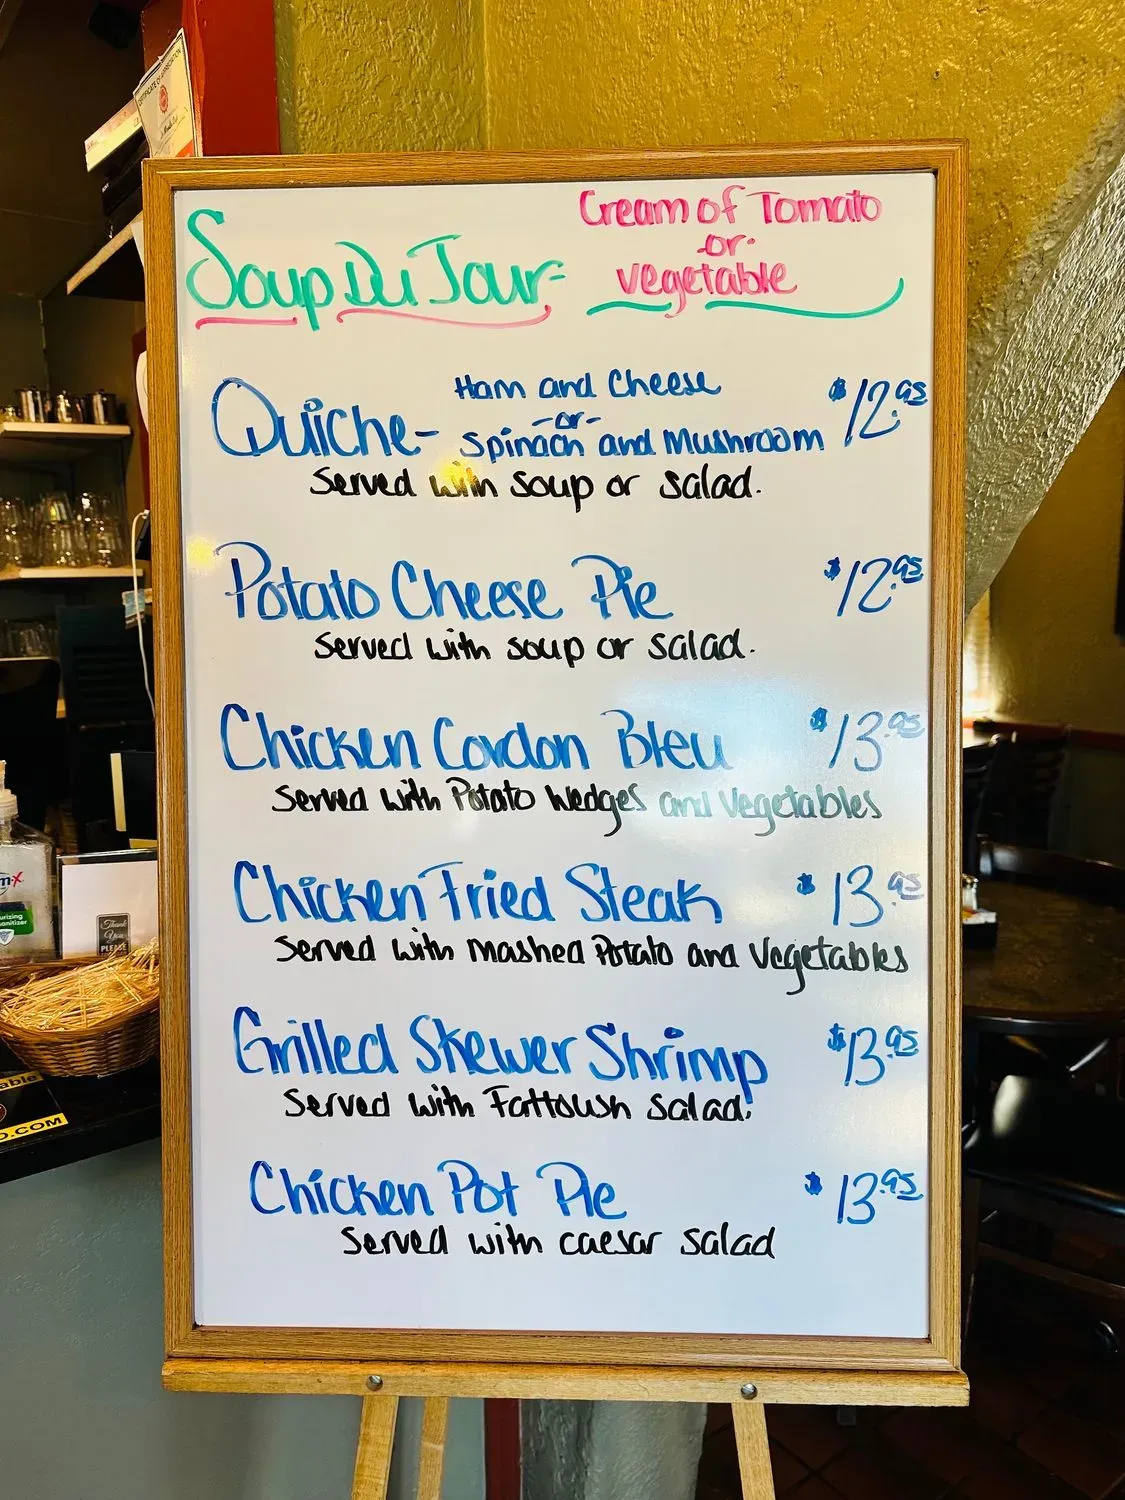 CERTIFICATE OF APPRECIATION
Soup Du Jour-
Cream of Tomato
-or-
vegetable
Quiche-
Ham and Cheese
-or-
Spinach and Mushroom
$12.95
Served with soup or salad.
Potato Cheese Pie $12.95
Served with soup or salad.
Chicken Cordon Bleu $13.95
Served with Potato Wedges and Vegetables
Chicken Fried Steak $13.95
Served with Mashed Potato and Vegetables
Grilled Skewer Shrimp $13.95
Served with Fattoush salad.
Chicken Pot Pie $13.95
Served with caesar salad
Thank
You
PLEASE